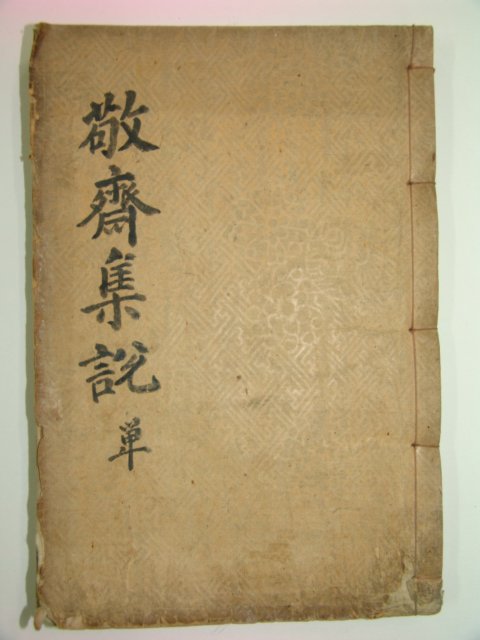 敬齋集說 単